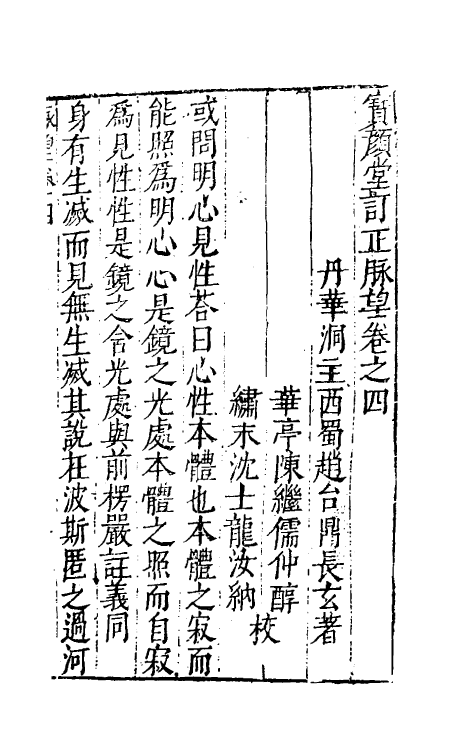 寳顏堂訂正脉望卷之四
丹華洞主西蜀趙台鼎長玄著
華亭陳繼儒仲醇
繡水沈士龍汝納
校
或問明心見性荅曰心性本體也本體之寂而
能照為明心心是鏡之光處本體之照而自寂
為見性性是鏡之含光處與前楞嚴註義同
身有生滅而見無生滅其說在波斯匿之過河